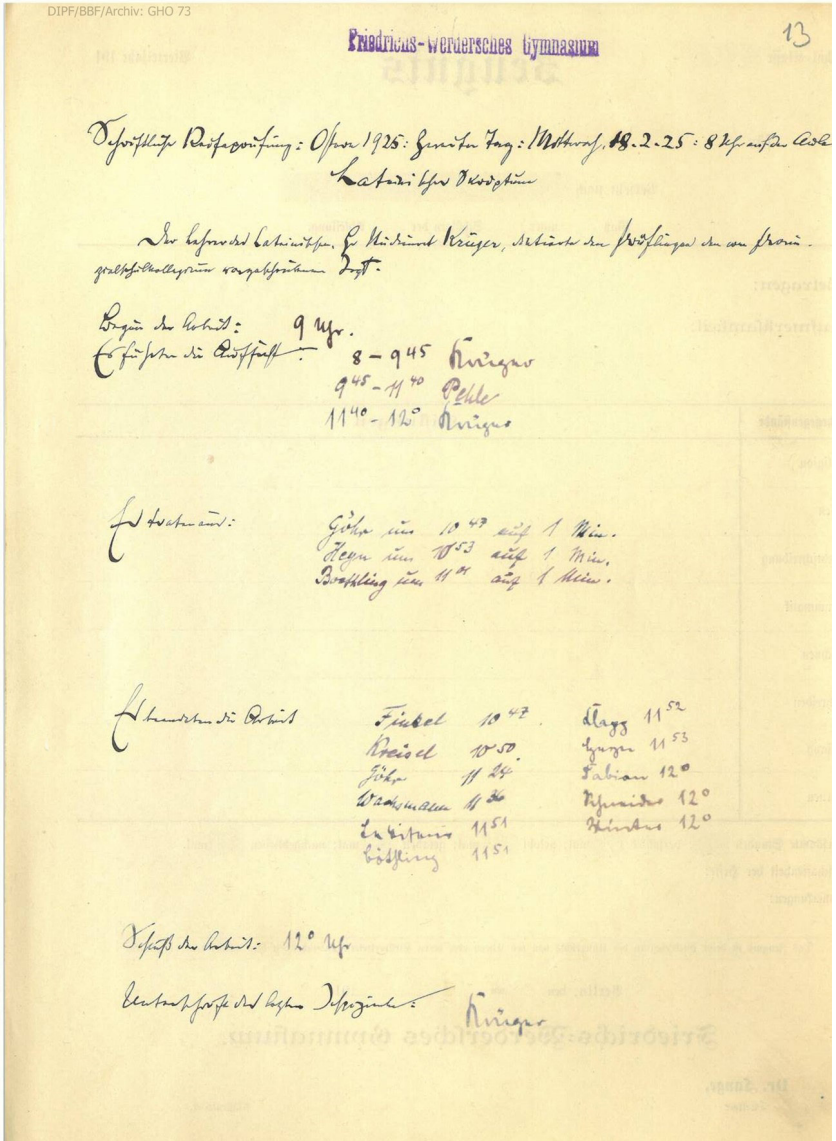 DIPF/BBF/Archiv: GHO 73
Friedrichs-Werdersches Gymnasium
13
Schriftliche Reifeprüfung: Ostern 1925: Zweiter Tag: Mittwoch, 18.2.25: 8 Uhr auf der Aula
Lateinisches Skriptum
Der Lehrer des Lateinischen, Hr Studienrat Krüger, diktierte den Prüflingen den vom Provin-
zialschulkollegium vorgeschriebenen Text.
Beginn der Arbeit: 9 Uhr.
Es führten die Aufsicht: 8 - 9 45 Krüger
9 45 - 11 40 Pehle
11 40 - 12 0 Krüger
Es traten aus: Göhr um 10 47 auf 1 Min.
um 10 53 auf 1 Min.
um 11 01 auf 1 Min.
Es beendeten die Arbeit Finkel 10 47 11 52
Kreisel 10 50 11 53
Göhr 11 24 Fabian 12 0
Wachsmann 11 36 Schneider 12 0
11 51 Winter 12 0
11 51
Schluß der Arbeit: 12 0 Uhr
Unterschrift des letzten
Krüger
Friedrichs-Werdersches Gymnasium.